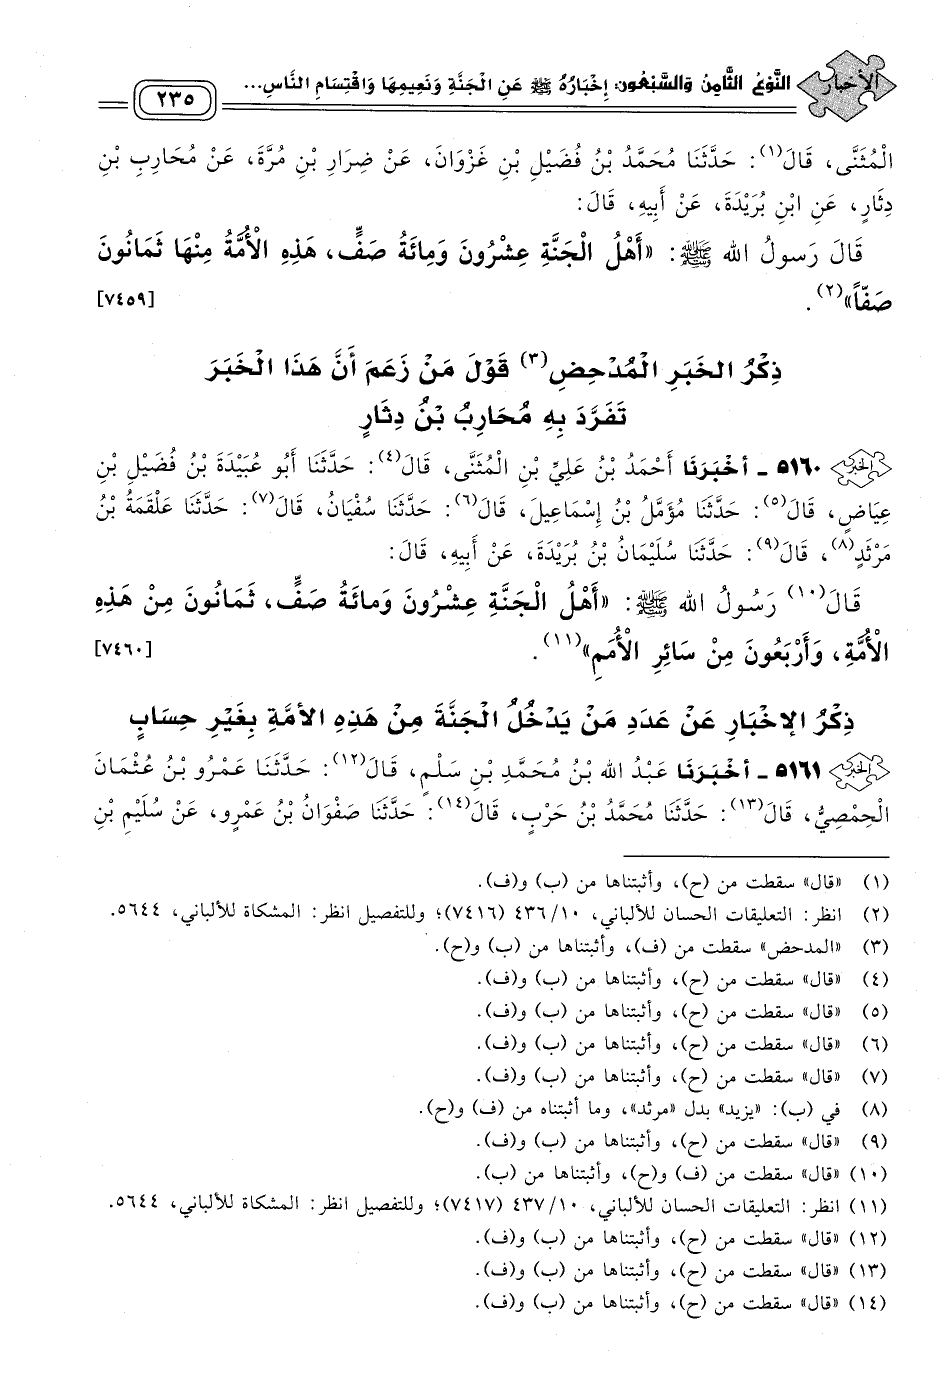 الأخبار
النَّوْعُ الثَّامِنُ وَالسَّبْعُونَ: إِخْبَارُهُ ﷺ عَنِ الْجَنَّةِ وَنَعِيمِهَا وَاقْتِسَامِ النَّاسِ...
٢٣٥
الْمُثَنَّى، قَالَ(١): حَدَّثَنَا مُحَمَّدُ بْنُ فُضَيْلِ بْنِ غَزْوَانَ، عَنْ ضِرَارِ بْنِ مُرَّةَ، عَنْ مُحَارِبِ بْنِ
دِثَارٍ، عَنِ ابْنِ بُرَيْدَةَ، عَنْ أَبِيهِ، قَالَ:
قَالَ رَسولُ الله ﷺ: «أَهْلُ الْجَنَّةِ عِشْرُونَ وَمِائَةُ صَفٍّ، هَذِهِ الْأُمَّةُ مِنْهَا ثَمَانُونَ
صَفّاً»(٢). [٧٤٥٩]
ذِكْرُ الخَبَرِ الْمُدْحِضِ(٣) قَوْلَ مَنْ زَعَمَ أَنَّ هَذَا الْخَبَرَ
تَفَرَّدَ بِهِ مُحَارِبُ بْنُ دِثَارٍ
الخبر ٥١٦٠ ـ أخْبَرَنَا أَحْمَدُ بْنُ عَلِيِّ بْنِ الْمُثَنَّى، قَالَ(٤): حَدَّثَنَا أَبُو عُبَيْدَةَ بْنُ فُضَيْلِ بْنِ
عِيَاضٍ، قَالَ(٥): حَدَّثَنَا مُؤَمَّلُ بْنُ إِسْمَاعِيلَ، قَالَ(٦): حَدَّثَنَا سُفْيَانُ، قَالَ(٧): حَدَّثَنَا عَلْقَمَةُ بْنُ
مَرْثَدٍ(٨)، قَالَ(٩): حَدَّثَنَا سُلَيْمَانُ بْنُ بُرَيْدَةَ، عَنْ أَبِيهِ، قَالَ:
قَالَ(١٠) رَسُولُ الله ﷺ: «أَهْلُ الْجَنَّةِ عِشْرُونَ وَمائَةُ صَفٍّ، ثَمَانُونَ مِنْ هَذِهِ
الْأُمَّةِ، وَأَرْبَعُونَ مِنْ سَائِرِ الْأُمَمِ»(١١). [٧٤٦٠]
ذِكْرُ الإخْبَارِ عَنْ عَدَدِ مَنْ يَدْخُلُ الْجَنَّةَ مِنْ هَذِهِ الأمَّةِ بِغَيْرِ حِسَابٍ
الخبر ٥١٦١ ـ أخْبَرَنَا عَبْدُ الله بْنُ مُحَمَّدِ بْنِ سَلْمٍ، قَالَ(١٢): حَدَّثَنَا عَمْرُو بْنُ عُثْمَانَ
الْحِمْصِيُّ، قَالَ(١٣): حَدَّثَنَا مُحَمَّدُ بْنُ حَرْبٍ، قَالَ(١٤): حَدَّثَنَا صَفْوَانُ بْنُ عَمْرٍو، عَنْ سُلَيْمِ بْنِ
(١) «قال» سقطت من (ح)، وأثبتناها من (ب) و(ف).
(٢) انظر: التعليقات الحسان للألباني، ١٠/ ٤٣٦ (٧٤١٦)؛ وللتفصيل انظر: المشكاة للألباني، ٥٦٤٤.
(٣) «المدحض» سقطت من (ف)، وأثبتناها من (ب) و(ح).
(٤) «قال» سقطت من (ح)، وأثبتناها من (ب) و(ف).
(٥) «قال» سقطت من (ح)، وأثبتناها من (ب) و(ف).
(٦) «قال» سقطت من (ح)، وأثبتناها من (ب) و(ف).
(٧) «قال» سقطت من (ح)، وأثبتناها من (ب) و(ف).
(٨) في (ب): «يزيد» بدل «مرثد»، وما أثبتناه من (ف) و(ح).
(٩) «قال» سقطت من (ح)، وأثبتناها من (ب) و(ف).
(١٠) «قال» سقطت من (ف) و(ح)، وأثبتناها من (ب).
(١١) انظر: التعليقات الحسان للألباني، ١٠/ ٤٣٧ (٧٤١٧)؛ وللتفصيل انظر: المشكاة للألباني، ٥٦٤٤.
(١٢) «قال» سقطت من (ح)، وأثبتناها من (ب) و(ف).
(١٣) «قال» سقطت من (ح)، وأثبتناها من (ب) و(ف).
(١٤) «قال» سقطت من (ح)، وأثبتناها من (ب) و(ف).